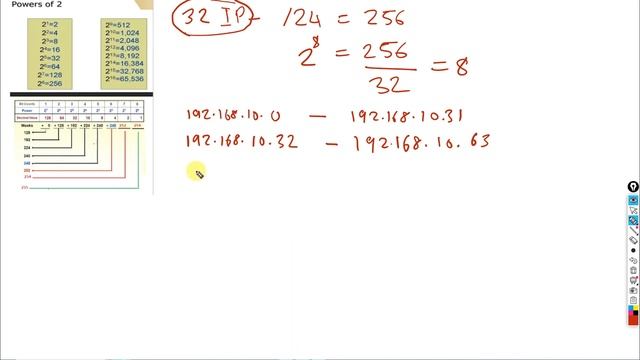 Powers of 2
2¹=2
2²=4
2³=8
2⁴=16
2⁵=32
2⁶=64
2⁷=128
2⁸=256
2⁹=512
2¹⁰=1,024
2¹¹=2,048
2¹²=4,096
2¹³=8,192
2¹⁴=16,384
2¹⁵=32,768
2¹⁶=65,536
1 2 3 4 5 6 7 8
Power
Decimal Value 128 64 32 16 8 4 2 1
Masks
128
192
224
240
248
252
254
255
32 IP - /24 = 256
2⁸ = 256 / 32 = 8
192.168.10.0 — 192.168.10.31
192.168.10.32 — 192.168.10.63